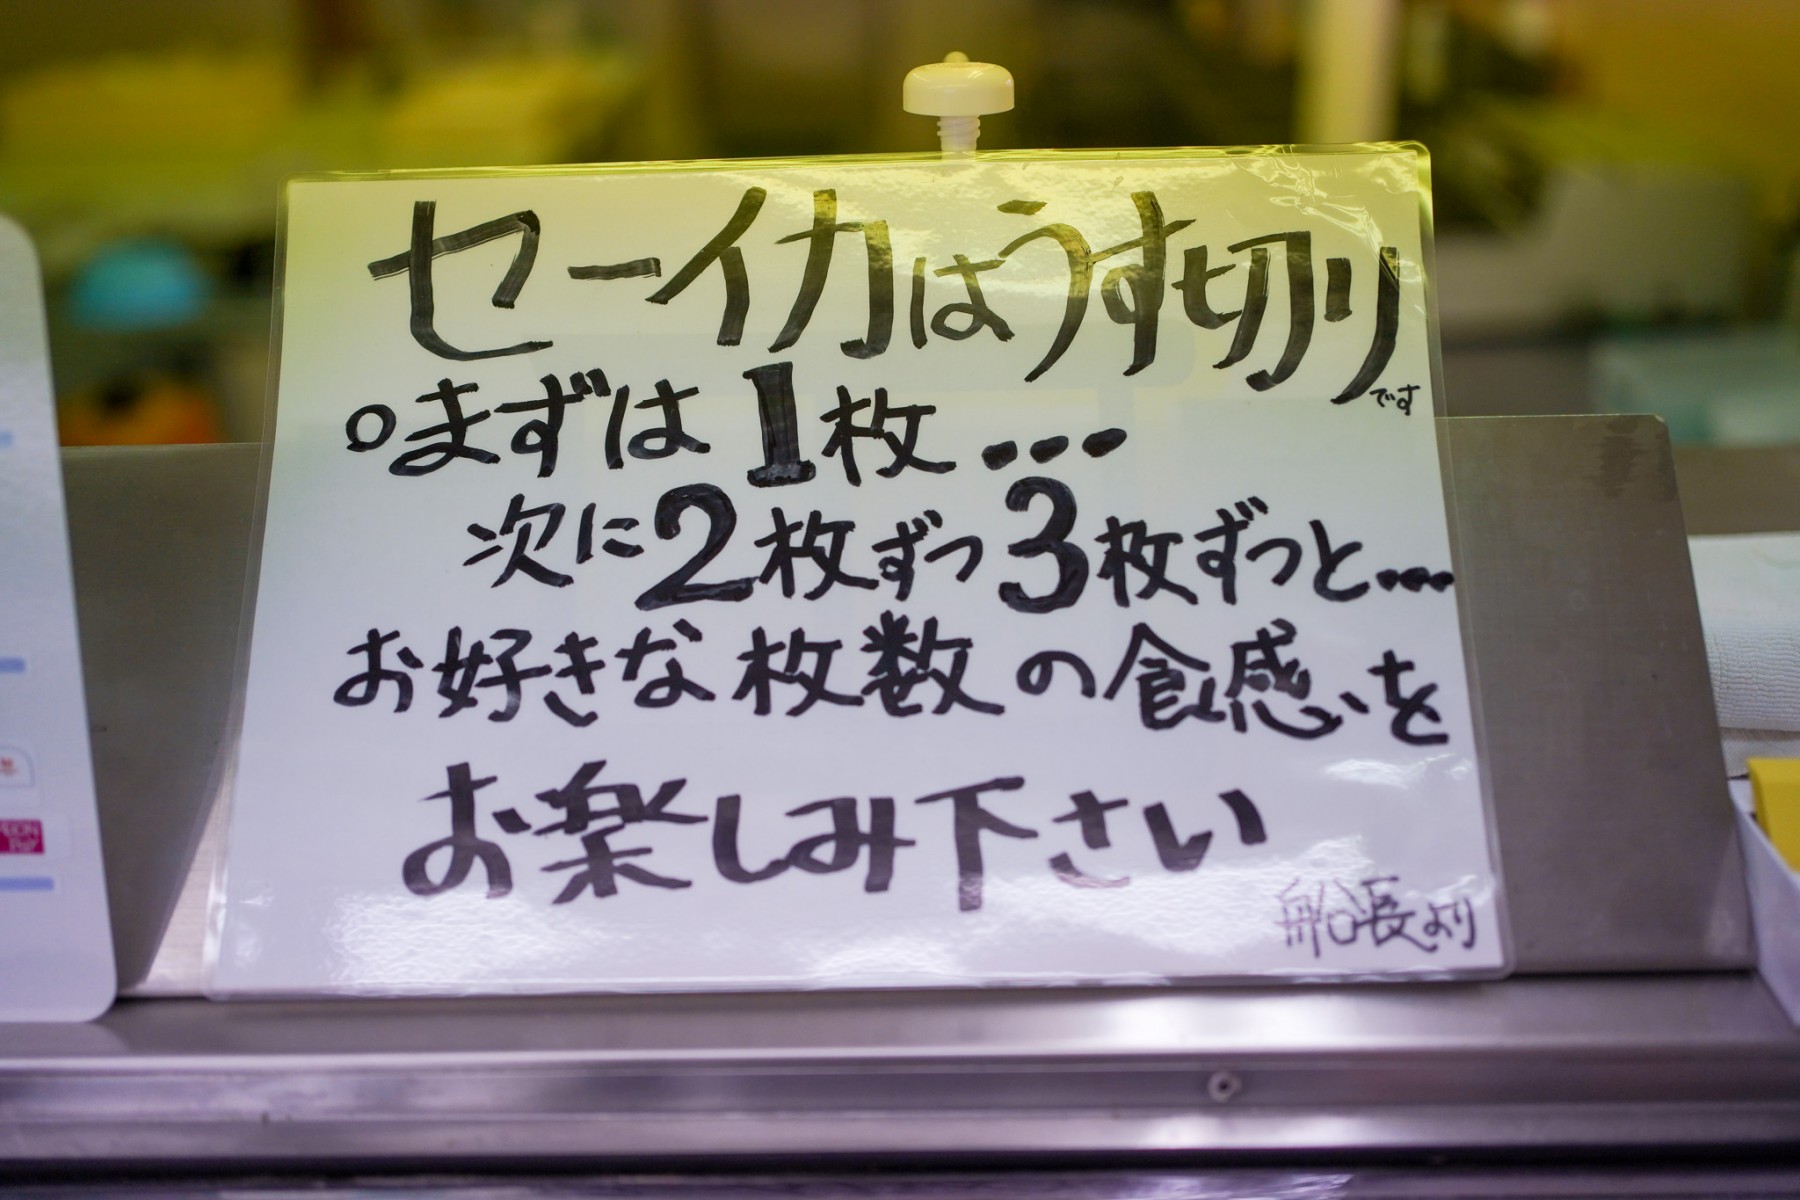 セーイカはうす切りです
○まずは1枚…
次に2枚ずつ3枚ずつと…
お好きな枚数の食感を
お楽しみ下さい
船長より